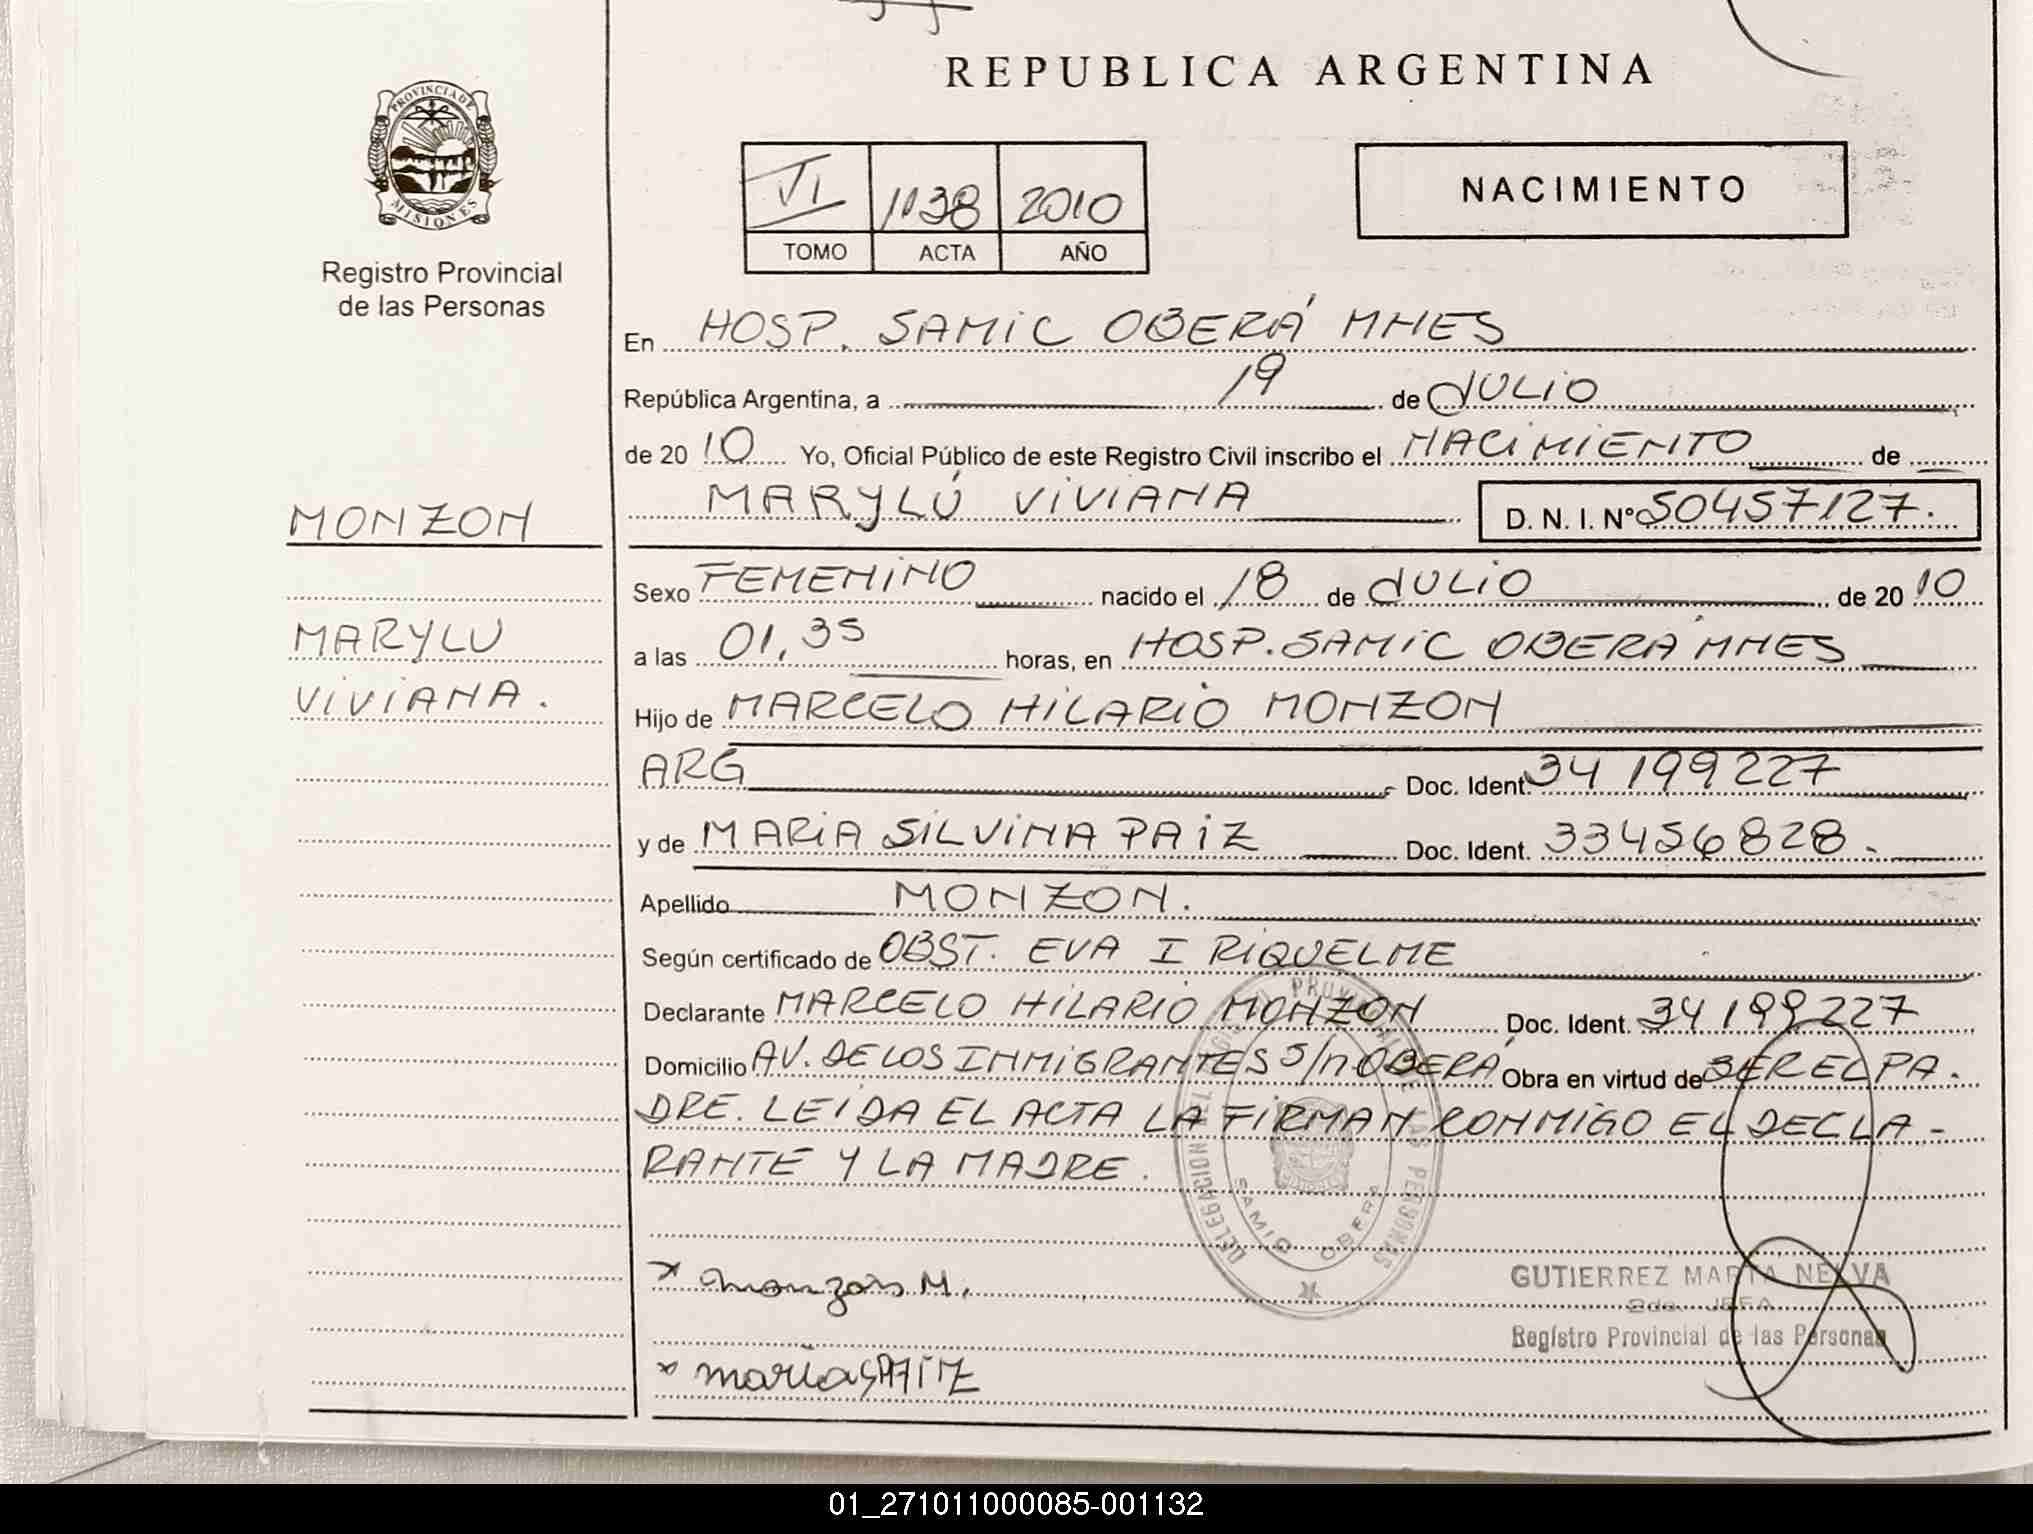 REPUBLICA ARGENTINA
PROVINCIA DE
MISIONES
Registro Provincial
de las Personas
VI 1138 2010
TOMO ACTA AÑO
NACIMIENTO
En HOSP. SAMIC OBERÁ MNES
República Argentina, a 19 de JULIO
de 2010 Yo, Oficial Público de este Registro Civil inscribo el NACIMIENTO de
MARYLÚ VIVIANA D. N. I. Nº 50457127.
MONZON
MARYLU
VIVIANA.
Sexo FEMENINO nacido el 18 de JULIO de 2010
a las 01,35 horas, en HOSP. SAMIC OBERÁ MNES
Hijo de MARCELO HILARIO MONZON
ARG Doc. Ident. 34199227
y de MARIA SILVINA PAIZ Doc. Ident. 33456828.
Apellido MONZON.
Según certificado de OBST. EVA I RIQUELME
Declarante MARCELO HILARIO MONZON Doc. Ident. 34199227
Domicilio AV. DE LOS INMIGRANTES S/N OBERÁ Obra en virtud de SER EL PA-
DRE. LEIDA EL ACTA LA FIRMAN CONMIGO EL DECLA-
RANTE Y LA MADRE.
DELEGACION DEL REGISTRO PROVINCIAL DE LAS PERSONAS
SAMIC OBERA
x monzon M.
x maria S PAIZ
GUTIERREZ MARTA NELVA
2da. JEFA
Registro Provincial de las Personas
01_271011000085-001132